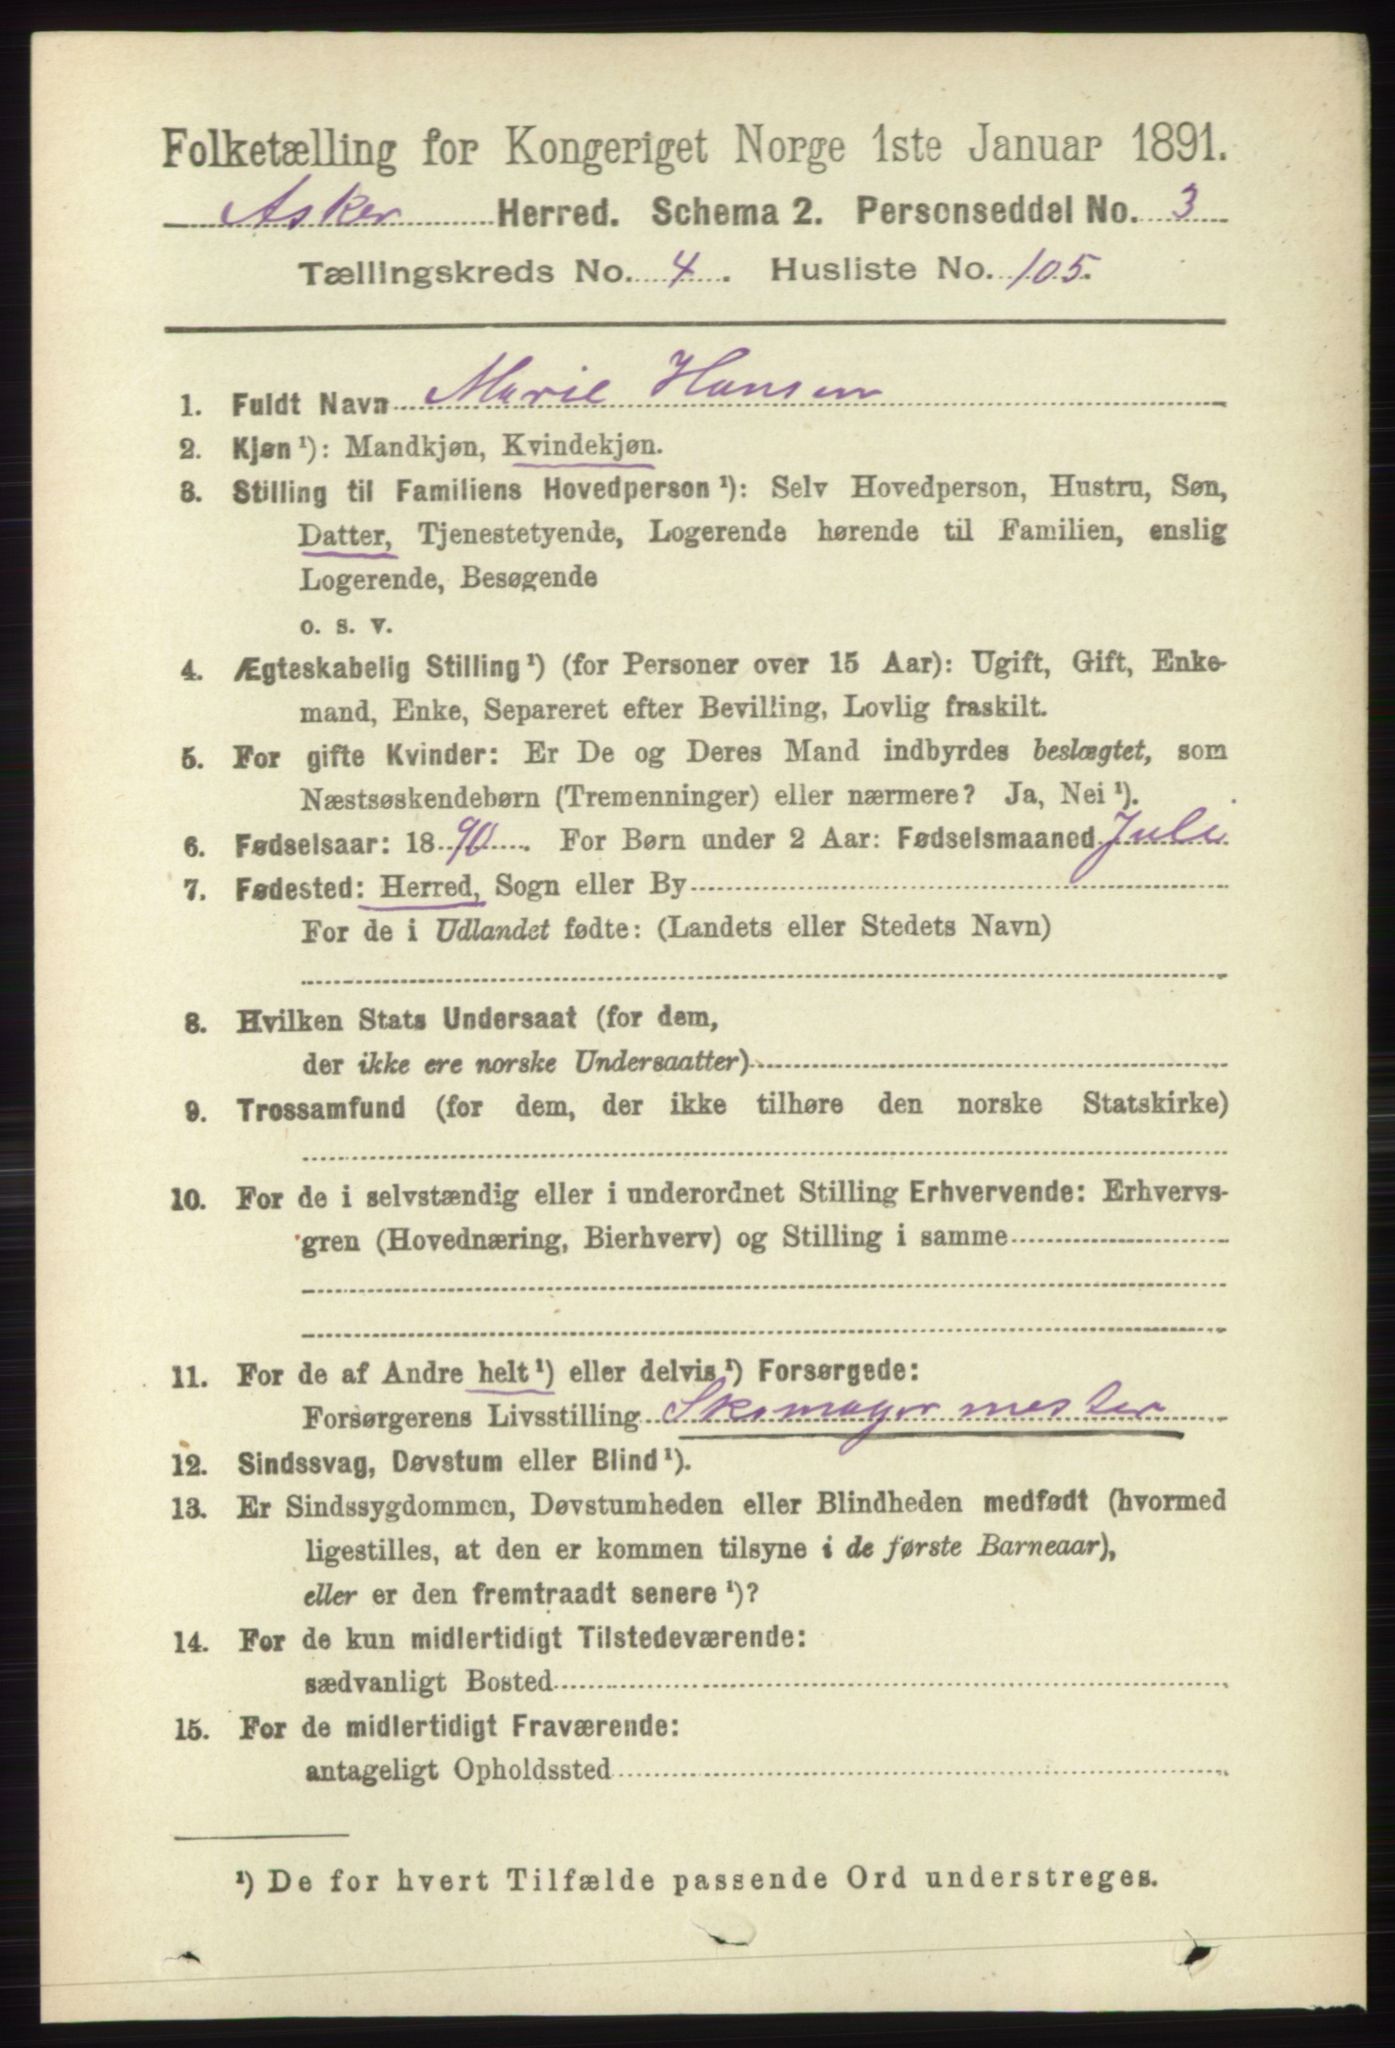 Folketælling for Kongeriget Norge 1ste Januar 1891.
Asker Herred. Schema 2. Personseddel No. 3
Tællingskreds No. 4. Husliste No. 105.
1. Fuldt Navn Marie Hansen
2. Kjøn¹): Mandkjøn, Kvindekjøn.
3. Stilling til Familiens Hovedperson¹): Selv Hovedperson, Hustru, Søn,
Datter, Tjenestetyende, Logerende hørende til Familien, enslig
Logerende, Besøgende
o. s. v.
4. Ægteskabelig Stilling¹) (for Personer over 15 Aar): Ugift, Gift, Enke-
mand, Enke, Separeret efter Bevilling, Lovlig fraskilt.
5. For gifte Kvinder: Er De og Deres Mand indbyrdes beslægtet, som
Næstsøskendebørn (Tremenninger) eller nærmere? Ja, Nei¹).
6. Fødselsaar: 1890. For Børn under 2 Aar: Fødselsmaaned Juli
7. Fødested: Herred, Sogn eller By
For de i Udlandet fødte: (Landets eller Stedets Navn)
8. Hvilken Stats Undersaat (for dem,
der ikke ere norske Undersaatter)
9. Trossamfund (for dem, der ikke tilhøre den norske Statskirke)
10. For de i selvstændig eller i underordnet Stilling Erhvervende: Erhvervs-
gren (Hovednæring, Bierhverv) og Stilling i samme
11. For de af Andre helt¹) eller delvis¹) Forsørgede:
Forsørgerens Livsstilling Skomagermester
12. Sindssvag, Døvstum eller Blind¹).
13. Er Sindssygdommen, Døvstumheden eller Blindheden medfødt (hvormed
ligestilles, at den er kommen tilsyne i de første Barneaar),
eller er den fremtraadt senere¹)?
14. For de kun midlertidigt Tilstedeværende:
sædvanligt Bosted
15. For de midlertidigt Fraværende:
antageligt Opholdssted
¹) De for hvert Tilfælde passende Ord understreges.